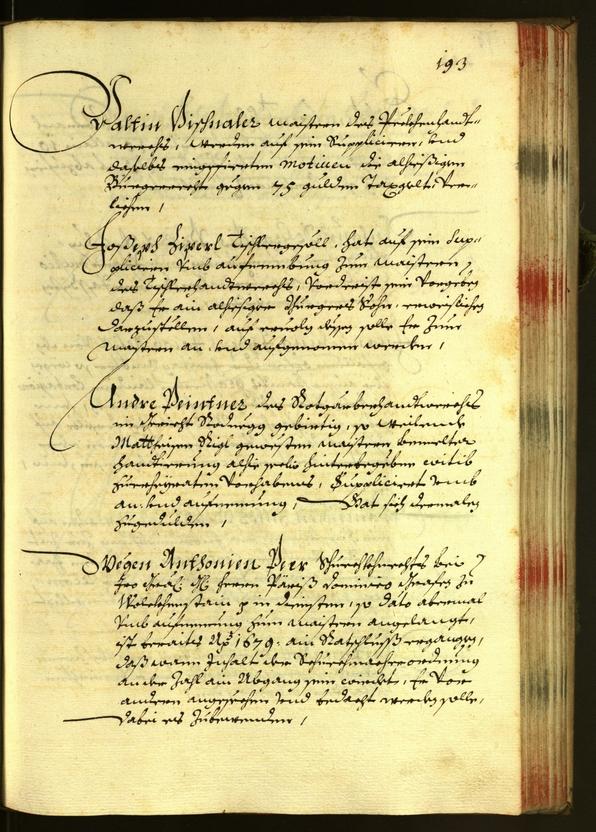 193
Valtin Vischnaler maistern des
werchs, werden auf sein Supplicieren, und
daselbs eingefierten Motiven die alhiesigen
Burgerrecht gegen 75 gulden Taxgelt Ver-
lichen,
Joseph Tischlergesöll, hat auf sein Sup-
plicieren umb aufnembung zum maistern
des Tischlerhandtwerchs, Vorderist sein Vorgeben
daß Er ain alhiesiger Burgers Sohn,
darzustellen, auf ervolg dessen solle Er zum
maistern an- und aufgenomen werden,
Andre Peintner des Rotgärberhandtwerchs
im Gericht Rodnegg gebirtig, so weilendt
Mattheisen Rigl gewesten maistern bemelter
handtierung alhie seelig hinterlassene witib
zuverheyraten Vorhabens, Suppliciert umb
an- und aufnemung, Hat sich dermalen
zugedulden,
Wegen Anthonien Pier Schuechknechts bei
Iro Herrn Päriß Dominico Grafen zu
Wolckhenstain in diensten, so dato abermal
umb aufnemung zum maistern angelangt,
ist beraits A.º 1679. ain Ratschluß ergangen,
daß wann Inhalt der Schuechmacherordnung
an der Zahl ain Abgang sein wirdet, Er Vor
andern angesechen und bedacht werden solle,
Dabei es Zubewenden,